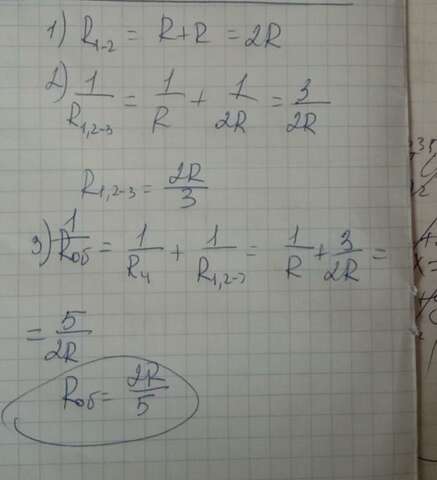 1) R₁₋₂ = R+R = 2R
2) 1/R₁,₂₋₃ = 1/R + 1/2R = 3/2R
R₁,₂₋₃ = 2R/3
3) 1/Rоб = 1/R₄ + 1/R₁,₂₋₃ = 1/R + 3/2R =
= 5/2R
Rоб = 2R/5